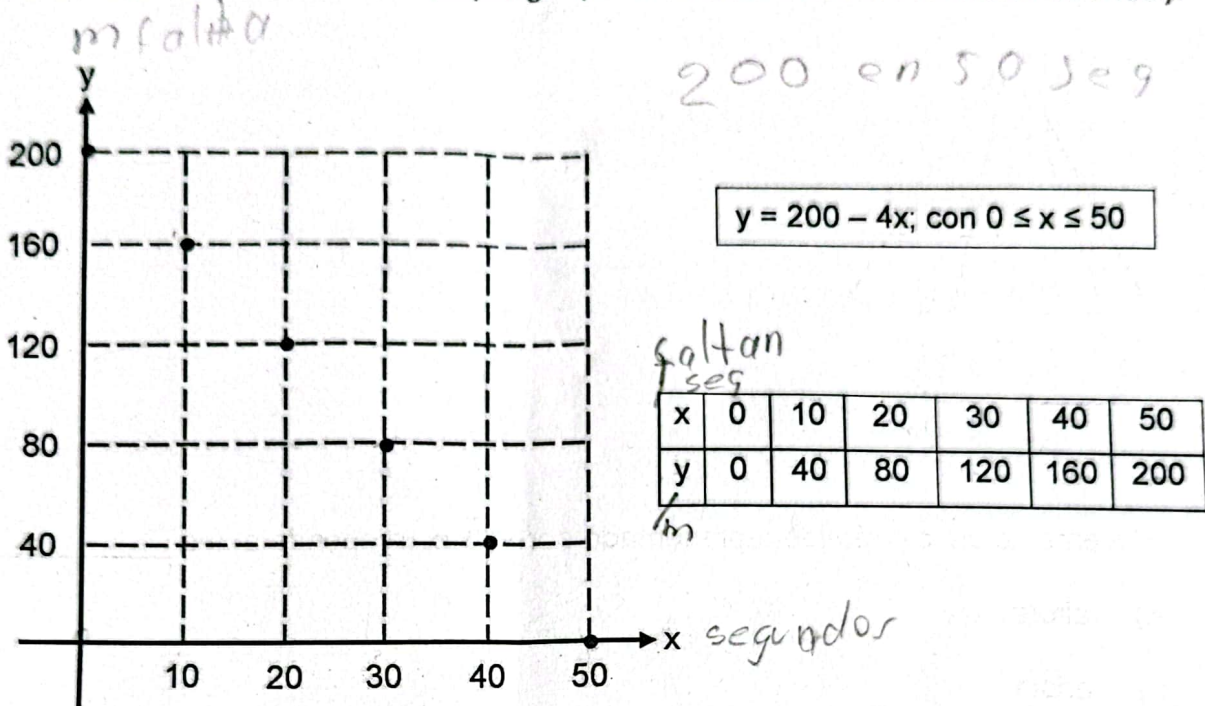 m falta
y
200 en 50 seg
200
160
120
80
40
10 20 30 40 50
x segundos
y = 200 – 4x; con 0 ≤ x ≤ 50
faltan
seg
x 0 10 20 30 40 50
y 0 40 80 120 160 200
m